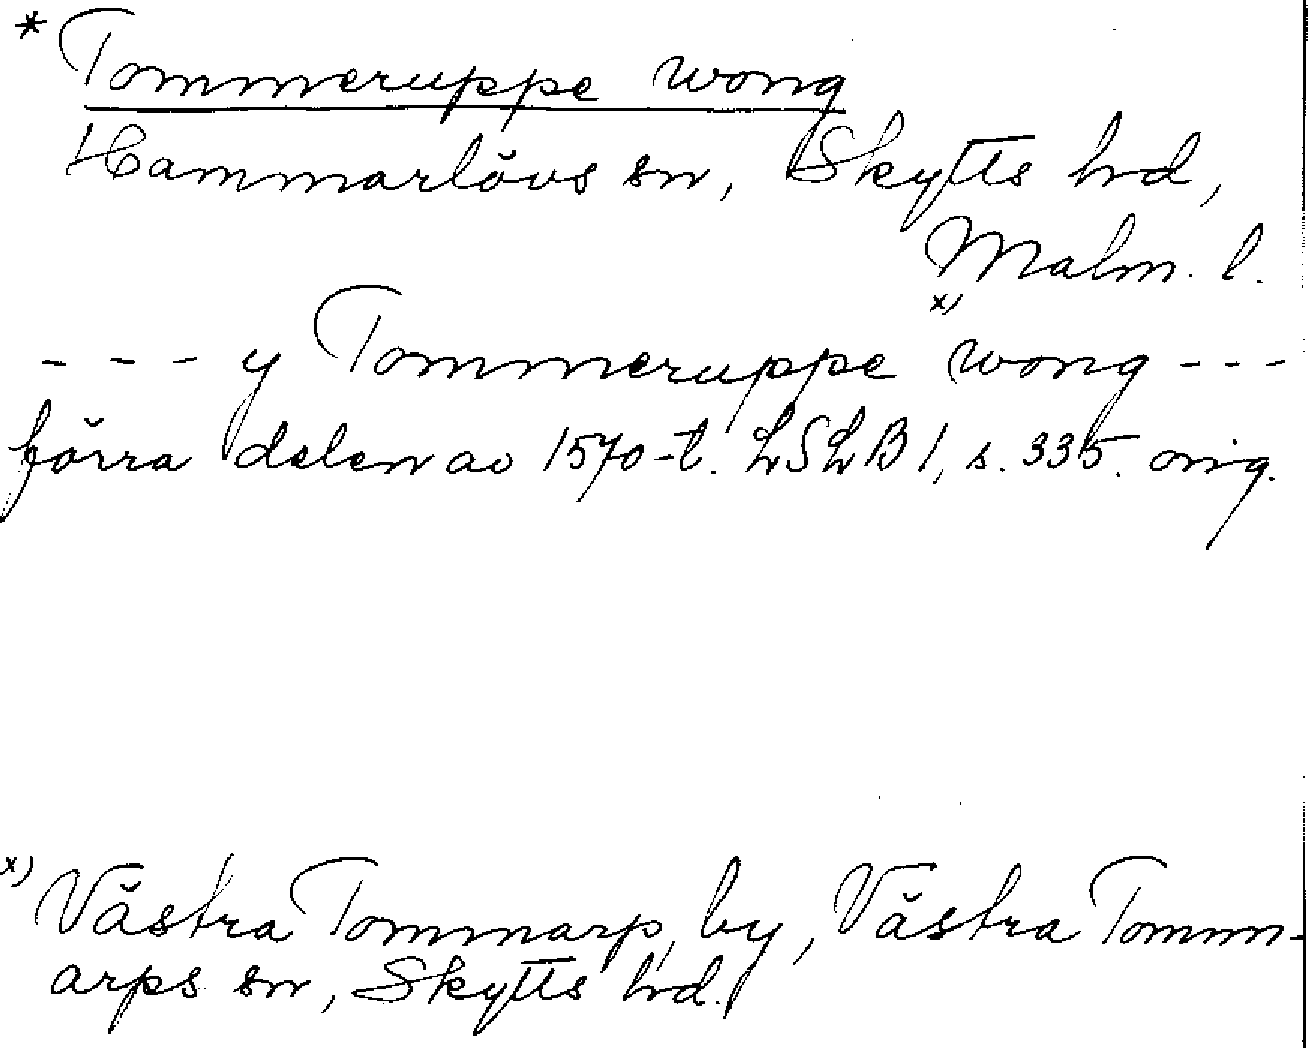 * Tommeruppe wong
Hammarlövs sn, Skytts hd,
Malm. l.
- - - y Tommeruppe x) wong - - -
förra delen av 1570-t. LSLB 1, s. 335. orig.
x) Västra Tommarp, by, Västra Tomm-
arps sn, Skytts hd.